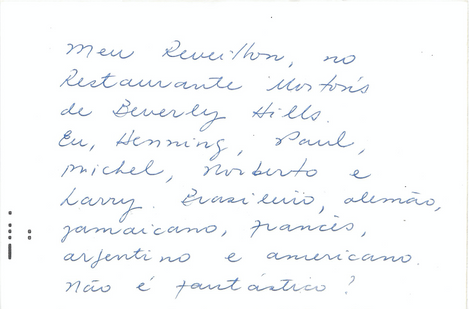 Meu Reveillon, no
Restaurante Morton's
de Beverly Hills.
Eu, Henning, Paul,
Michel, Norberto e
Larry. Brasileiro, alemão,
jamaicano, francês,
argentino e americano.
Não é fantástico?